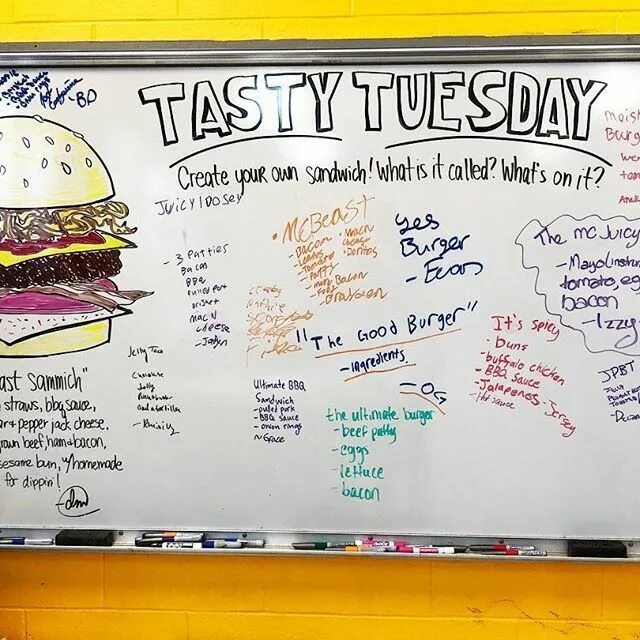 -BD
TASTY TUESDAY
Create your own sandwich! What is it called? What's on it?
Juicy 1 Dosey
- 3 Patties
Bacon
BBQ
Pulled Pork
Brisket
Mac N
cheese
- Jalyn
• MCBeast
- Bacon
- Tomato
- Patty
- more Bacon
• Mac N
cheese
- Doritos
- Graysen
yes
Burger
- Evan
"The Good Burger"
- ingredients
- OG
Ultimate BBQ
Sandwich
- pulled pork
- BBQ sauce
- onion rings
~ Grace
the ultimate burger
- beef patty
- eggs
- lettuce
- bacon
It's spicy
- buns
- buffalo chicken
- BBQ Sauce
- Jalapenos
- Hot sauce
- Jersey
Moist
Burg
The mc Juicy
- Mayo
tomato, eg
bacon
- Izzy
JPBT
Jelly Taco
Chocolate
Jelly
ast sammich"
straws, bbq sauce,
ar + pepper jack cheese.
rown beef, ham + bacon,
sesame bun, w/ homemade
for dippin'!
- dm